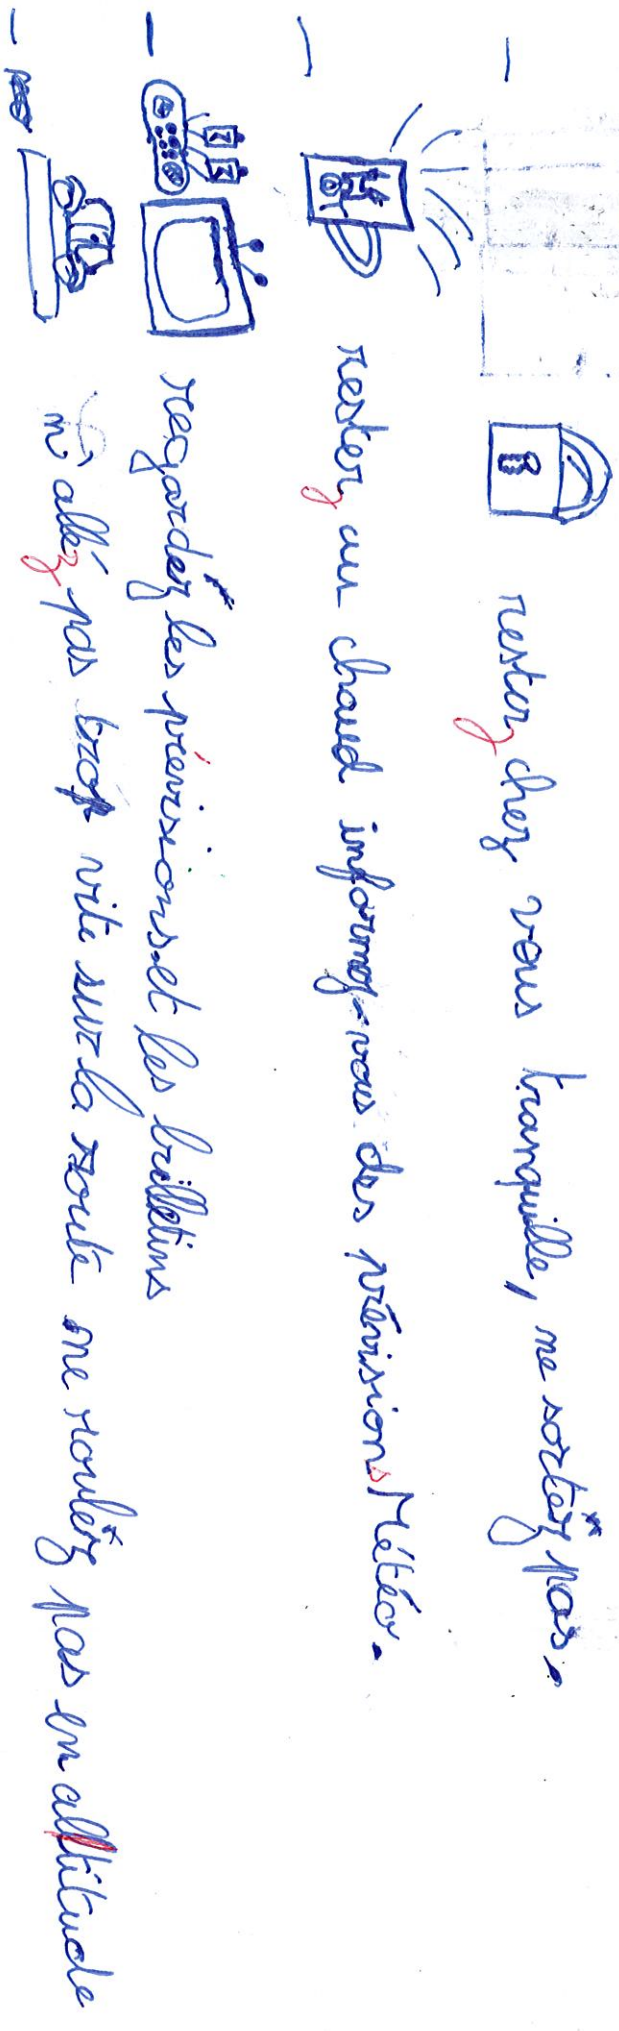 - restez chez vous tranquille, ne sortez pas.
- restez au chaud informez-vous des prévisions Météo.
- regardéz les prévisions et les bulletins
- n'alléz pas trop vite sur la route ne rouléz pas en altitude